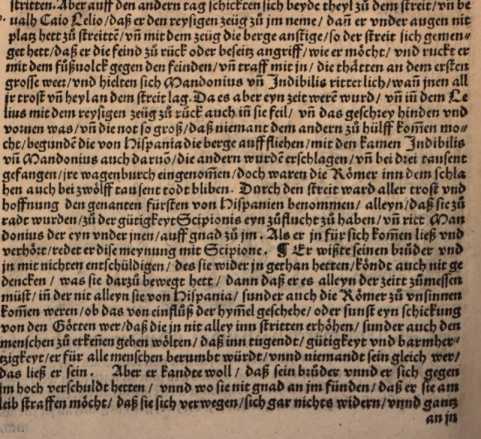 stritten. Aber auff den andern tag schickten sich beyde theyl zů dem streit/ vñ be
ualh Caio Lelio/ daß er den reysigen zeüg zů jm neme/ dañ er vnder augen nit
platz hett zů streittẽ/ vñ mit dem zeüg die berge anstige/ so der streit sich gemen⸗
get hett/ daß er die feind zů rück oder beseitz angriff/ wie er möcht/ vnd ruckt er
mit dem füßuolck gegen den feinden/ vñ traff mit jn/ die thätten an dem ersten
grosse weer/ vnd hielten sich Mandonius vñ Indibilis ritterlich/ wañ jnen all
jr trost vñ heyl an dem streit lag. Da es aber eyn zeit werẽ wurd/ vñ im̃ dem Le
lius mit dem reysigen zeüg zů rück auch in̄ sie feil/ vñ das geschrey hinden vnd
vornen was/ vñ die not so groß/ daß niemant dem andern zů hülff kom̃en mo⸗
cht/ begundẽ die von Hispania die berge auff fliehen/ mit den kamen Indibilis
vñ Mandonius auch daruõ/ die andern wurdẽ erschlagen/ vñ bei drei tausent
gefangen/ jre wagenburch eingenom̃en/ doch waren die Römer inn dem schla
hen auch bei zwölff tausent todt bliben. Durch den streit ward aller trost vnd
hoffnung den genanten fürsten von Hispanien benommen/ alleyn/ daß sie zů
radt wurden/ zů der gütigkeyt Scipionis eyn zůflucht zů haben/ vñ rict Man
donius der eyn vnder jnen/ auff gnad zů jm. Als er jn für sich kom̃en ließ vnd
verhört/ redet er dise meynung mit Scipione. ¶ Er wißte seinen brůder vnd
jn mit nichten entschüldigen/ des sie wider jn gethan hetten/ köndt auch nit ge
dencken/ was sie darzů bewegt hett/ dann daß er es alleyn der zeitt zůmessen
müst/ in̄ der nit alleyn sie von Hispania/ sunder auch die Römer zů vnsinnen
kom̃en weren/ ob das von einflüß der hym̃el geschehe/ oder sunst eyn schickung
von den Götten wer/ daß die jn nit alley inn stritten erhöhen/ sunder auch den
menschen zů erkeñen geben wölten/ daß inn tugendt/ gütigkeyt vnd barmher⸗
tzigkeyt/ er für alle menschen berumbt würdt/ vnnd niemandt sein gleich wer/
das ließ er sein. Aber er kandte woll/ daß sein brůder vnnd er sich gegen
jm hoch verschuldt hetten/ vnnd wo sie nit gnad an jm fünden/ daß er sie am
leib straffen möcht/ daß sie sich verwegen/ sich gar nichts widern/ vnnd gantz
an jn